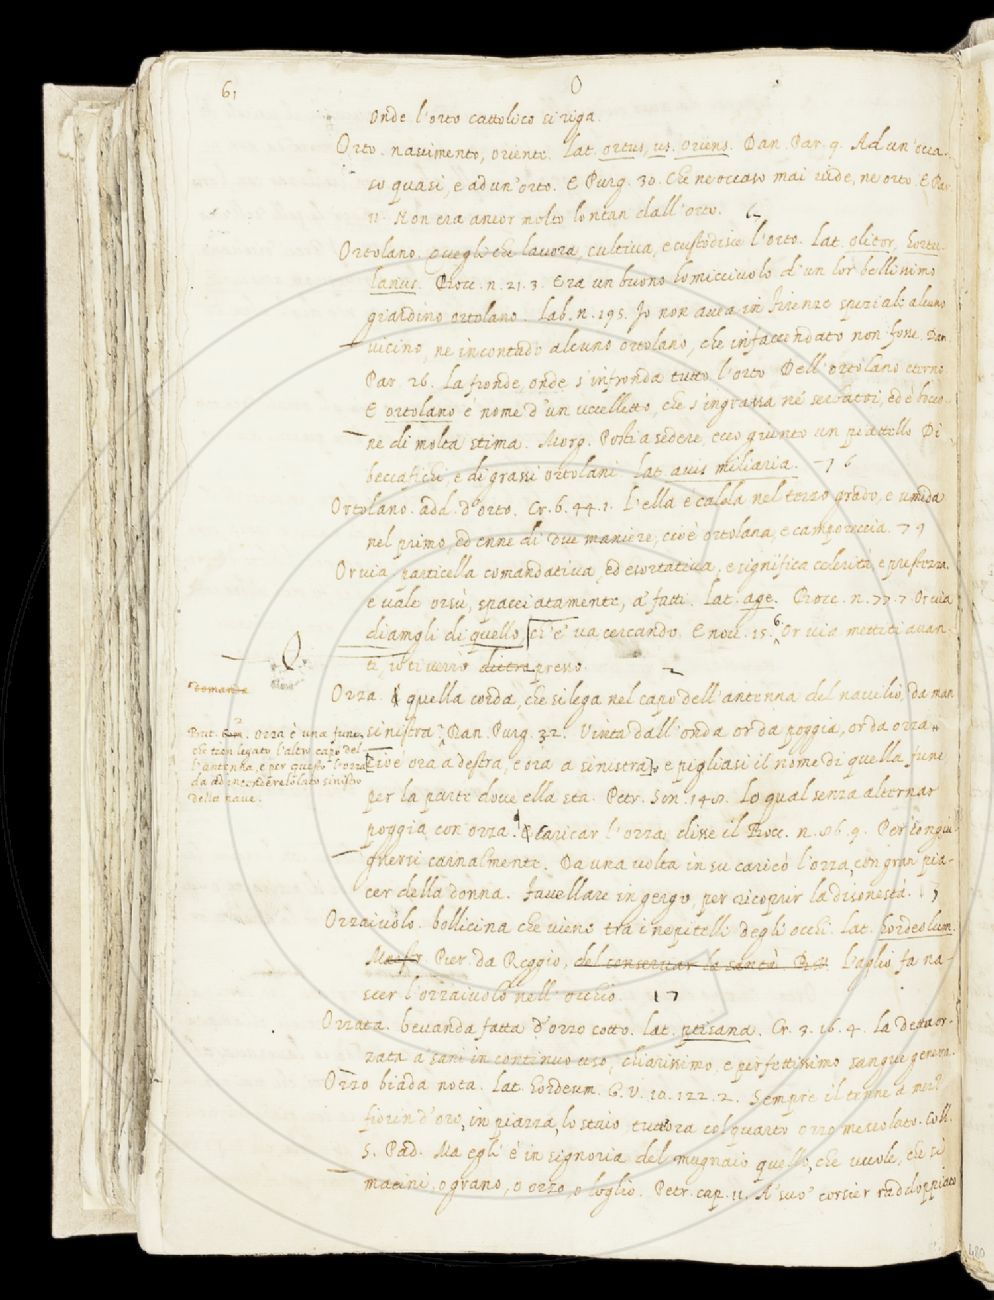 61
O
onde l'orto cattolico si riga.
Orto. nascimento, oriente. Lat. ortus, us. oriens. Dan. Par. 9. Ad un'occa-
so quasi, e ad un'orto. E Purg. 30. Che ne occaso mai vide, ne orto. E Par.
11. Non era ancor molto lontan dall'orto.
Ortolano. quegli che lavora, cultiva, e custodisce l'orto. Lat. olitor, hortu-
lanus. Bocc. n. 21. 3. Era un buono homicciuolo d'un lor bellissimo
giardino ortolano. Lab. n. 195. Io non avea in Firenze speziale alcuno
vicino, ne in contado alcuno ortolano, che infaccendato non fosse. Dan.
Par. 26. La fronde, onde s'infronda tutto l'orto Dell'ortolano eterno
E ortolano è nome d'un uccelletto, che s'ingrassa ne' serbatoi, ed è bocco-
ne di molta stima. Morg. Posti a sedere, ecco giunto un piattello Di
beccafichi e di grassi ortolani. Lat. avis miliaria. 76
Ortolano. add. d'orto. Cr. 6. 44. 1. L'ella è calda nel terzo grado, e umida
nel primo, ed enne di due maniere, cioè ortolana, e camporeccia. 79
Or via particella comandativa, ed esortativa, e significa celerità, e prestezza
e vale orsù, spacciatamente, a' fatti. Lat. age. Bocc. n. 77. 7. Or via
diamgli di quello, ch'e' va cercando. E nov. 15. 6 Or via mettiti avan-
ti, io ti verrò dietro presso.
Orza. quella corda, che si lega nel capo dell'antenna del navilio, da man
sinistra. Dan. Purg. 32. Vinta dall'onda or da poggia, or da orza
cioè ora a destra, e ora a sinistra, e pigliasi il nome di quella fune
per la parte dove ella sta. Petr. Son. 148. Lo qual senza alternar
poggia con orza. Caricar l'orza, disse il Bocc. n. 86. 9. Per congiu-
gnersi carnalmente. Da una volta in su caricò l'orza, con gran pia-
cer della donna. Favellare in gergo, per ricoprir la disonestà.
Orzaiuolo. bollicina che viene tra i nepitelli degli occhi. Lat. hordeolum.
Pier. da Reggio, del conservar la santà. L'aglio fa na-
scer l'orzaiuolo nell'occhio. 17
Orzata. bevanda fatta d'orzo cotto. Lat. ptisana. Cr. 3. 16. 4. La detta or-
zata a' sani in continuo uso, chiarissimo, e perfettissimo sangue genera.
Orzo biada nota. Lat. hordeum. G. V. 10. 122. 2. Sempre il tenne a mezzo
fiorin d'oro, in piazza, lo staio, tuttora col quarto orzo mescolato. Coll.
S. Pad. Ma egli è in signoria del mugnaio quello, che vuole, che si
macini, o grano, o orzo, o loglio. Petr. cap. 11. A' suo' corsier raddoppiato
Romania
But. Orza è una fune,
che tien legato l'altro capo del-
l'antenna, e per questo l'orza
da ad intendere lo lato sinistro
della nave.
480